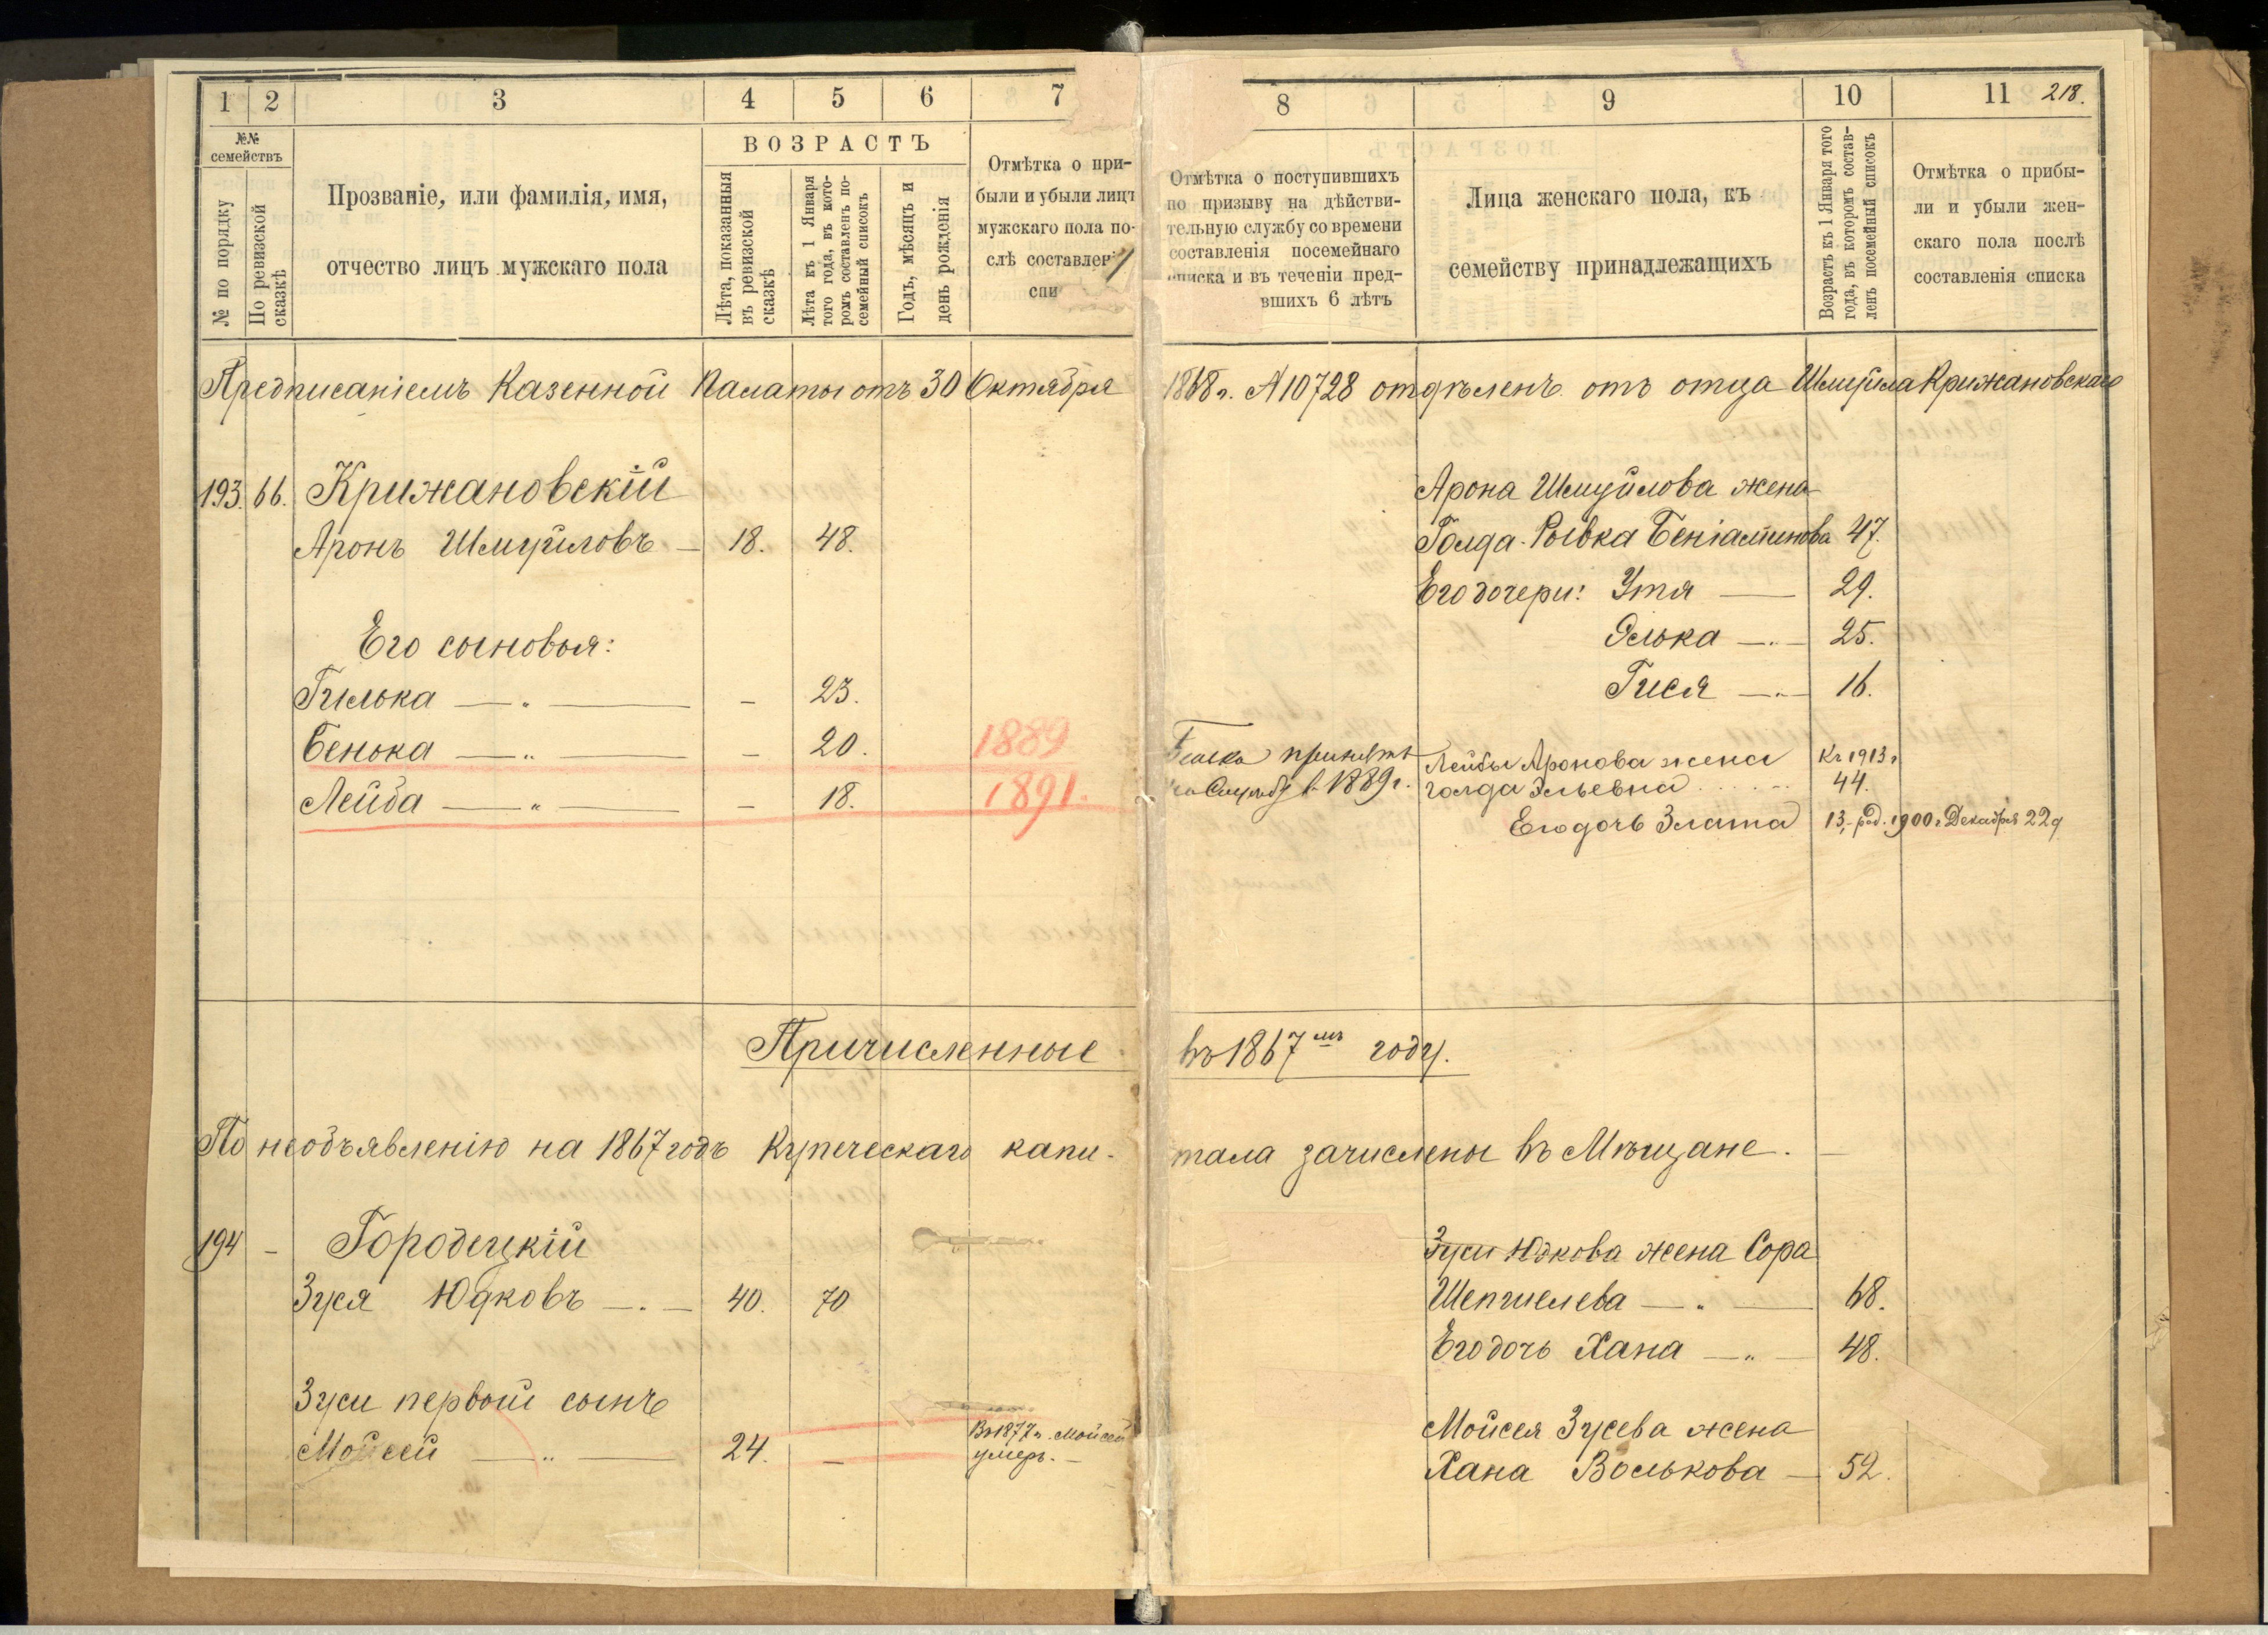 1 2 3 4 5 6 7
№№ семействъ
№ по порядку
По ревизской сказкѣ
Прозваніе, или фамилія, имя,
отчество лицъ мужскаго пола
ВОЗРАСТЪ
Лѣта, показанныя
въ ревизской
сказкѣ
Лѣта къ 1 Января
того года, въ кото-
ромъ составленъ по-
семейный списокъ
Годъ, мѣсяцъ и
день рожденія
Отмѣтка о при-
были и убыли лицъ
мужскаго пола по-
слѣ составлен
спи
8 9 10 11 218.
Отмѣтка о поступившихъ
по призыву на дѣйстви-
тельную службу со времени
составленія посемейнаго
списка и въ теченіи пред-
вшихъ 6 лѣтъ
Лица женскаго пола, къ
семейству принадлежащихъ
Возрастъ къ 1 Января того
года, въ которомъ состав-
ленъ посемейный списокъ
Отмѣтка о прибы-
ли и убыли жен-
скаго пола послѣ
составленія списка
Предписаніемъ Казенной Палаты отъ 30 Октября 1868 г. № 10728 отдѣленъ отъ отца Шмуйла Крижановскаго
193. 66. Крижановскій
Аронъ Шмуйловъ — 18. 48.
Его сыновья:
Гилька — „ — - 23.
Бенька — „ — - 20. 1889
Лейба — „ — - 18. 1891.
принятъ
на Службу в 1889 г.
Арона Шмуйлова жена
Голда-Рывка Беніаминова 47.
Его дочери: Утя — 29.
Элька — „ — 25.
Гися — „ — 16.
Лейбы Аронова жена Къ 1913 г
Голда Эльевна 44.
Его дочь Злата 13, род. 1900 г Декабря 22 д
Причисленные въ 1867мъ году.
По необъявленію на 1867 годъ Купеческаго капи-тала зачислены въ Мѣщане. —
194 - Городецкій
Зуся Юдковъ — „ — 40. 70
Зуси первый сынъ
Мойсей — „ — 24. —
Въ 1877 г. Мойсей
умеръ. —
Зуси Юдкова жена Сора
Шепшелева — „ — 68.
Его дочь Хана — „ — 48.
Мойсея Зусева жена
Хана Волькова — 52.